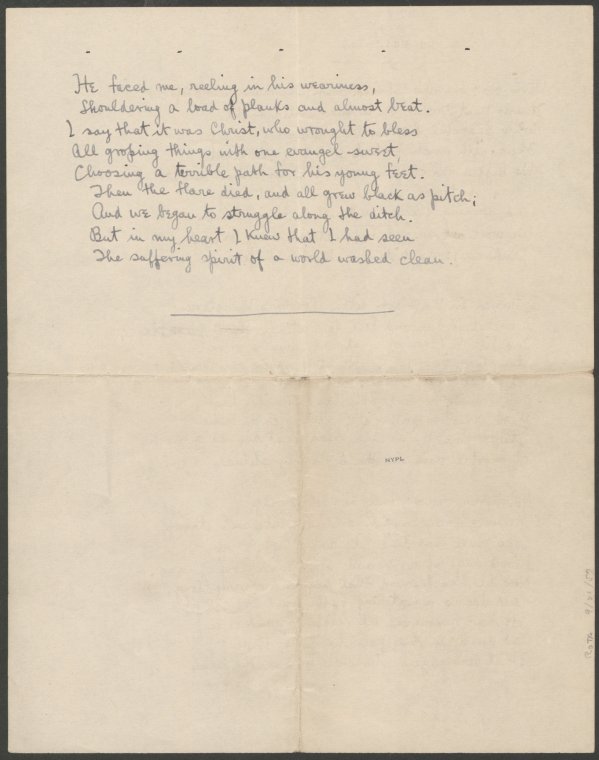 He faced me, reeling in his weariness,
Shouldering a load of planks and almost beat.
I say that it was Christ, who wrought to bless
All groping things with one evangel sweet,
Choosing a terrible path for his young feet.
Then the flare died, and all grew black as pitch;
And we began to struggle along the ditch.
But in my heart I knew that I had seen
The suffering spirit of a world washed clean.
NYPL